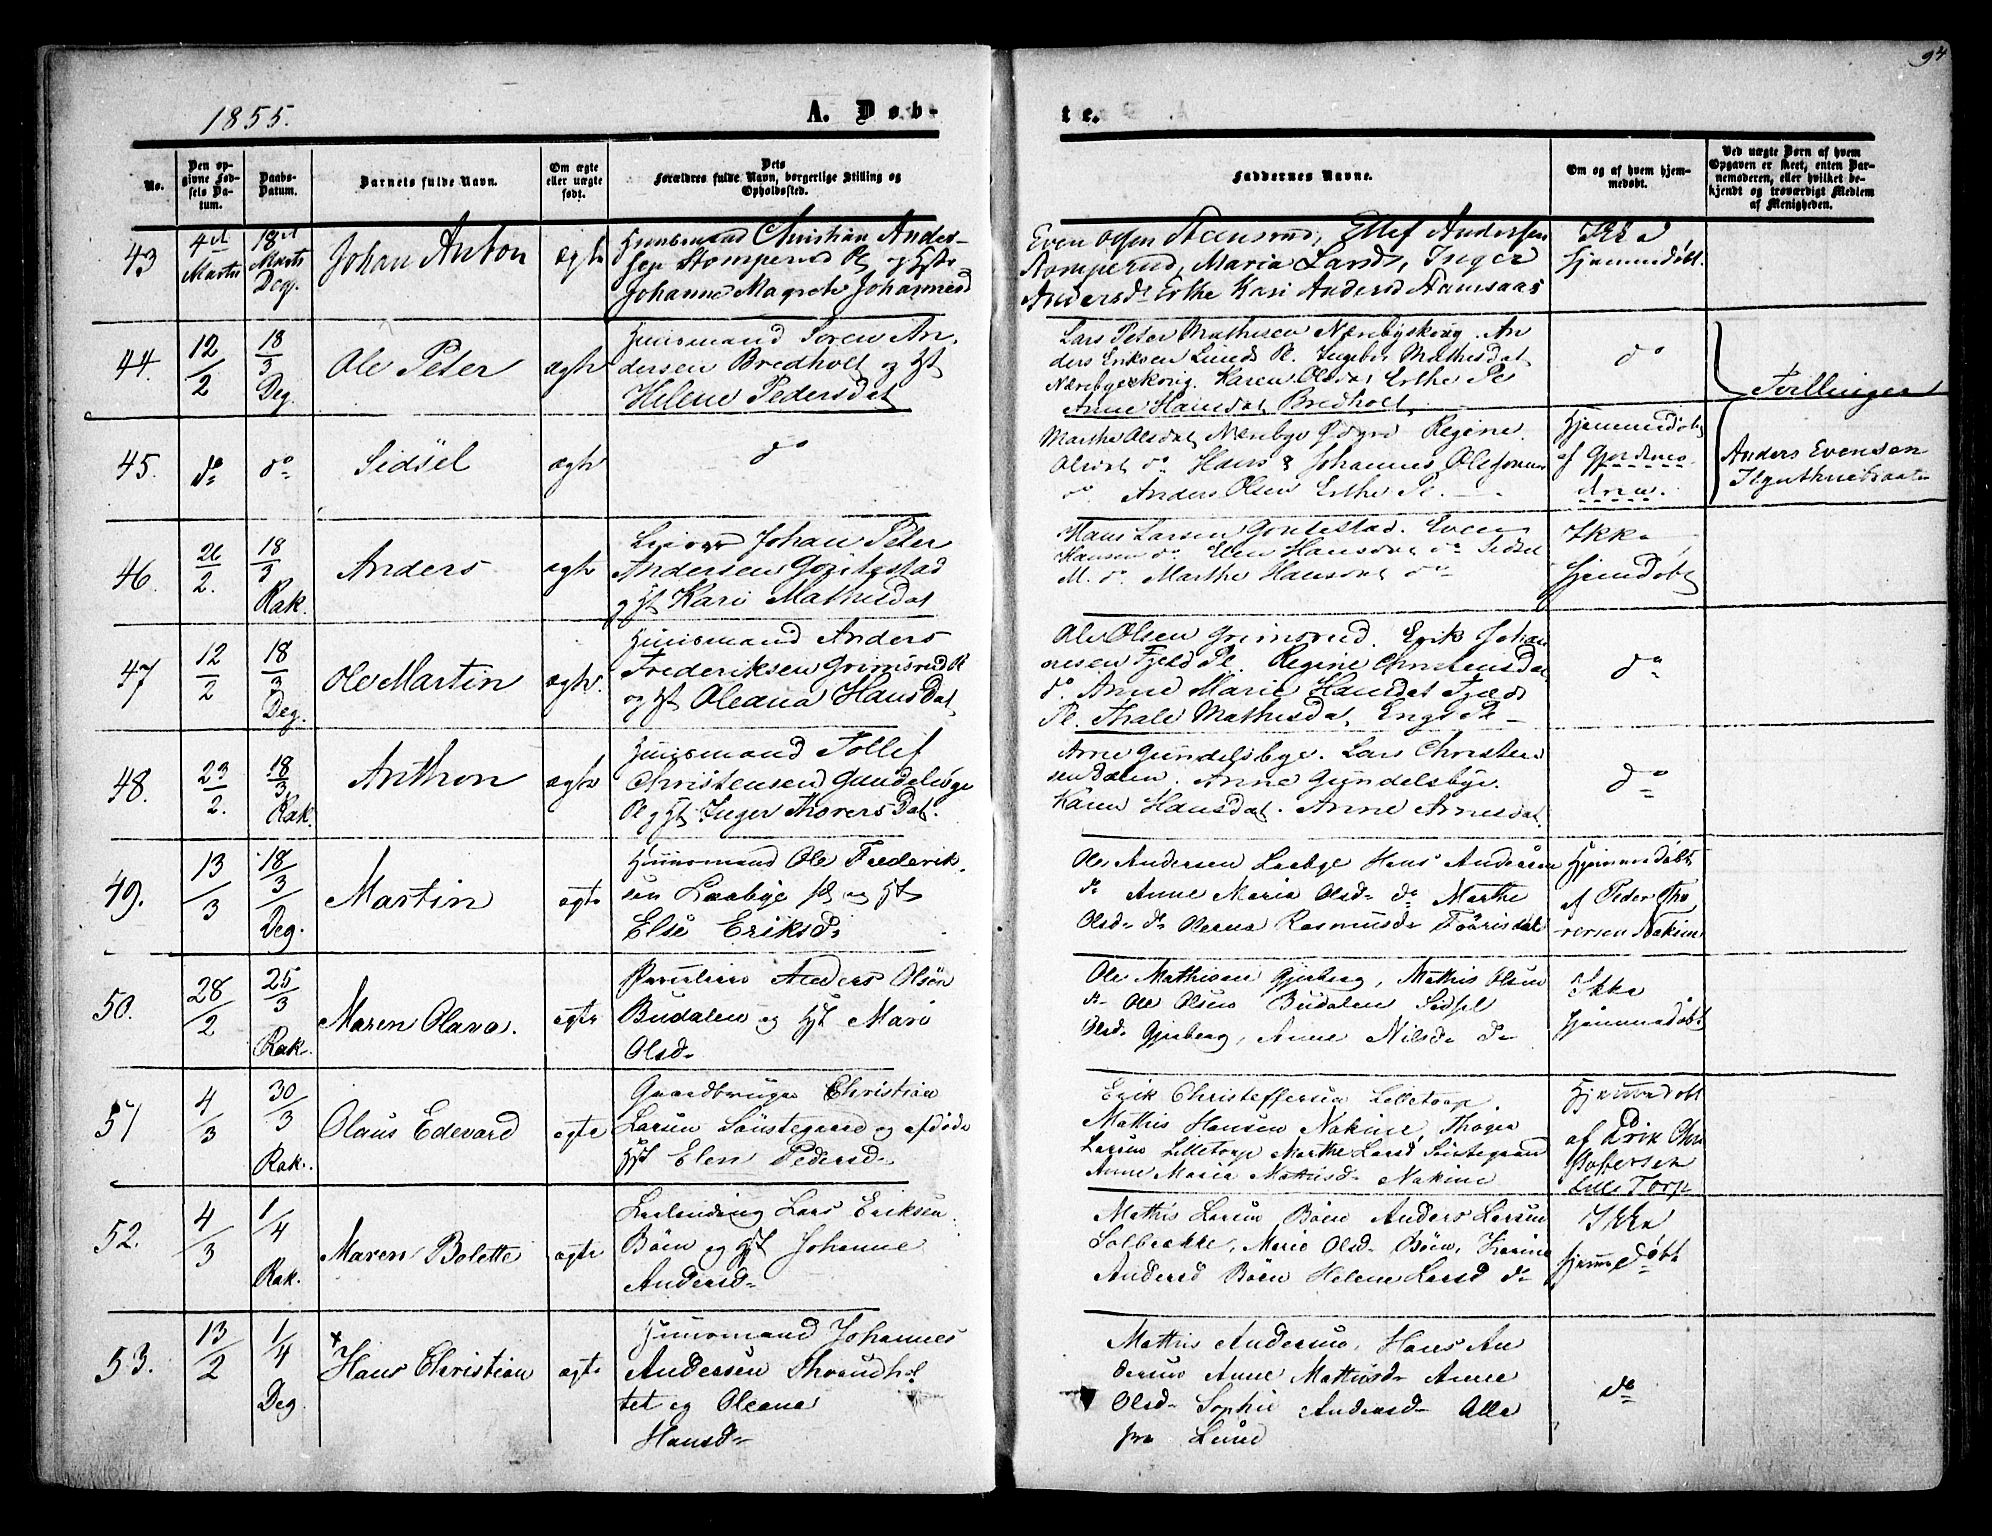 94
1855.
A. Døb-
te.
No.
Den op-
givne Fød-
sels Da-
tum.
Daabs-
Datum.
Barnets fulde Navn.
Om ægte
eller uægte
født.
Dets
Forældres fulde Navn, borgerlige Stilling og
Opholdssted.
Faddernes Navne.
Om og af hvem hjem-
medøbt.
Ved uægte Børn af hvem
Opgaven er skeet, enten Bar-
nemoderen, eller hvilket be-
kjendt og troværdigt Medlem
af Menigheden.
43
4de Marts
18de Marts
Deg.
Johan Anton
ægte
Huusmand Christian Ander-
sen Stomperud Pl og Hstr
Johanne Magrete Johannesd
Even Olsen Ellef Andersen
Stomperud, Maria Lands, Inger
Andersd Erthe Kari Andersd
Ikke
hjemmedøbt.
44.
12/2
18/3
Deg.
Ole Peter
ægte
Huusmand Soren An-
dersen Bredholt og Hst
Helene Pedersdat
Lars Peter Mathisen . An
ders Eriksen Lunds Pl. Ingebor Mathisdat
Karen Olsdat Erthe Pl
Anne Hansdat Bredholt
do
Tvillinger
45.
do
do
Sidsel
ægte
do
Marthe Olsdat Nærebye Regine
Olsdat do Hans & Johannes
do Anders Olsen Erthe Pl.
Hjemmedøbt
af Gjordemo
dren.
Anders Evensen
46.
26/2.
18/3
Rak.
Anders
ægte
Johan Peter
Andersen Gontestad
og Hst Kari Mathisdat
Hans Larsen Gontestad. Even
Hansen do Elen Hansdat do Sidsel
M. do Marthe Hansdat do
Ikke
hjemdøbt
47
12/2
18/3
Deg.
Ole Martin
ægte.
Huusmand Anders
Frederiksen Grimsrud Pl
og Hst Oleana Hansdat
Ole Olsen Grimsrud. Erik Johan
nesen Fjeld Pl. Regine Christensdat
do Anne Marie Hansdat Fjeld
Pl. Thale Mathisdat, Engs Pl
do
48.
23/2.
18/3
Rak.
Anthon
ægte
Huusmand Tollef
Christensen Gundelsbye
Pl og Hst Inger Thorersdat.
Arne Gundelsbye. Lars Christen-
sen Dalen. Anne Gundelsbye.
Karen Hansdat. Anne Arnesdat.
do
49.
13/3
18/3
Deg.
Martin
ægte
Huusmand Ole Frederik-
sen Laabye Pl og Hst
Else Eriksd.
Ole Andersen Laabye Hans Andersen
do Anne Maria Olsd. do Marthe
Olsd. do Oleana Rasmusd.
Hjemmedøbt
af Peder Tho
rersen Nakim
50.
28/2
25/3
Rak.
Maren Olava.
ægte
Anders Olsen
Budalen og Hst Mari
Olsd.
Ole Mathisen Gjerberg, Mathis Olsen
do Ole Olsen Budalen Sidsel
Olsd. Gjerberg, Anne Nilsd. do
Ikke
hjemmedøbt
51
4/3
30/3
Rak.
Olaus Edevard
ægte
Gaardbruger Christian
Larsen Sønstegaard og afdøde
Hst Elen Pedersd.
Erik Christoffersen Lilletorp.
Mathis Hansen Nakim, Thoger
Larsen Lilletorp Marthe Larsd Sønstegaard
Anne Maria Mathisd. Nakim
Hjemmedøbt
af Erik Chri
stofersen
Lille Torp
52.
4/3
1/4
Rak.
Maren Bolette
ægte
Leilending Lars Eriksen
Børn og Hst Johanne
Andersd.
Mathis Larsen Børn Anders Larsen
Solbrække, Marie Olsd. Børn, Karine
Andersd Børn Helene Larsd do
Ikke
hjemmedøbt
53.
13/2
1/4
Deg.
+ Hans Christian
ægte
Huusmand Johannes
Andersen Thorudhol
tet og Oleane
Hansd.
Mathis Andersen, Hans An
dersen Anne Mathisd. Anne
Olsd. Sophie Andersd. Alle
fra Lund
do